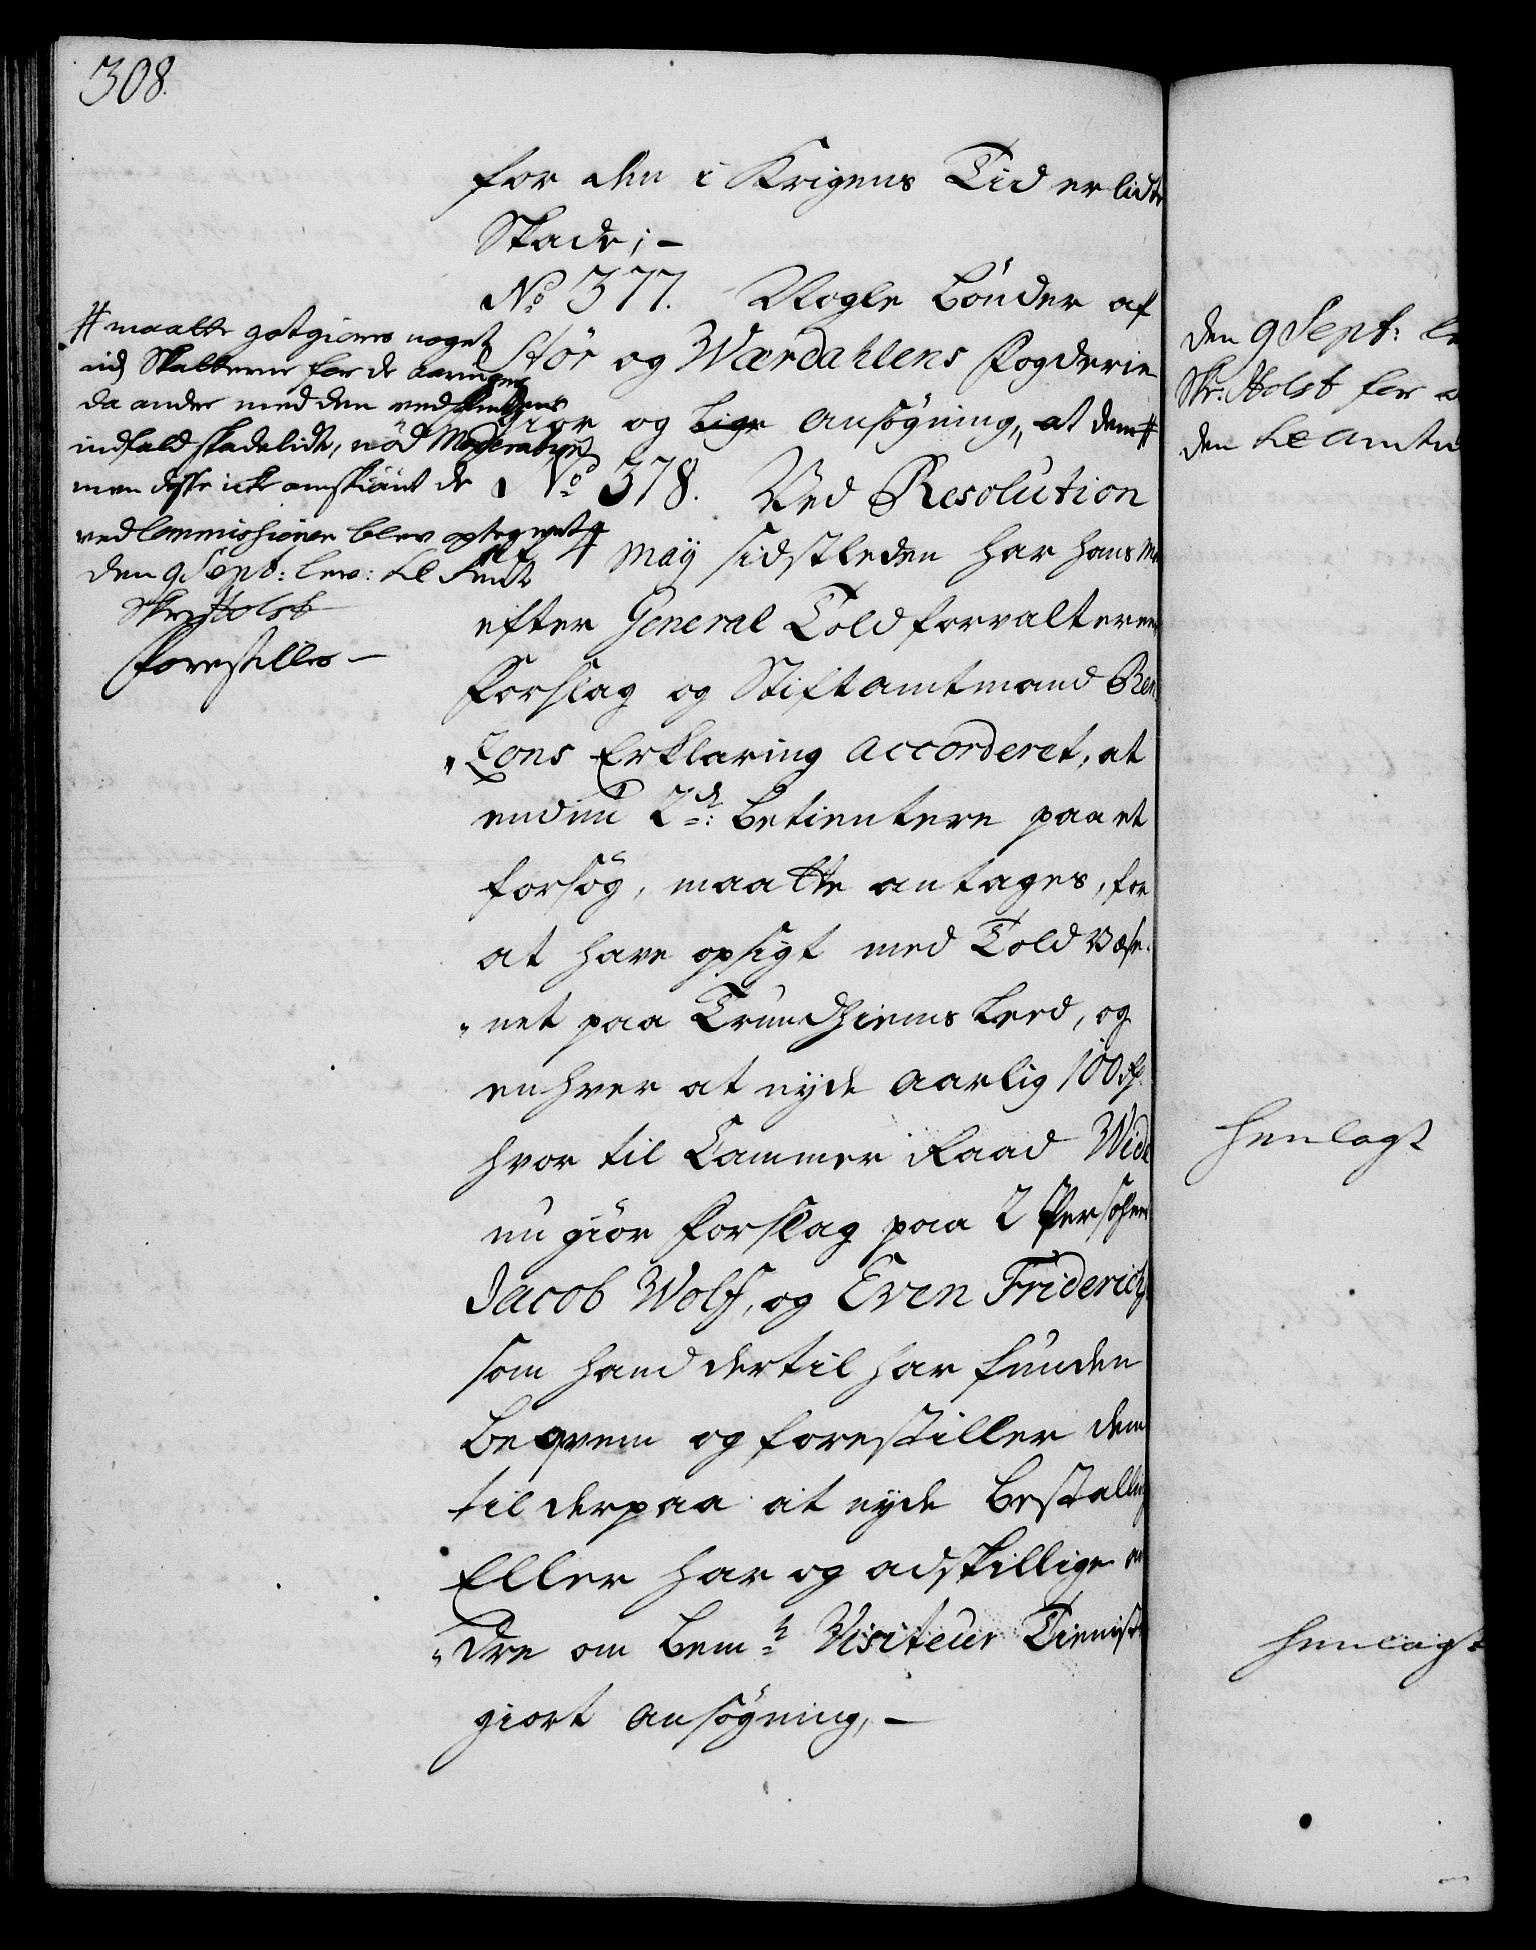 308.
for den i Krigens Tid erlidte
Skade; –
No 377. Nogle bönder af
Stör og Wærdahlens fogderie
giör og lige ansögning, at dem #
# maatte gotgiøres noget
ud Skatterne for de aaringer
da ander med den ved fiendens
indfald skadelidt, nöd Moderation
men disse icke omskiönt de
ved Commissionen blev optegnet
den 9 Sept: lev:
Skr. Holst
forestilles –
No 378. Ved Resolution
af 4 maÿ sidstleden har hans May
efter General Toldforvalterens
forslag og Stiftamtmand Ben
„Zons Erklaring accorderet, at
endnu 2de: betientere paa et
forsög, maatte antages, for
at have opsigt med Told Væse-
„net paa Trundhiems Leed, og
enhver at nÿde aarlig 100 rd
hvor til Cammer Raad Wide
nu giör forslag paa 2 Persohner
Jacob Wolf, og Even Friderichs
som hand dertil har funden
beqvem og forestiller dem
til derpaa at nÿde bestalling
Eller har og adskillige an
„dre om bemte Visiteur Tieniste
giort ansögning, –
den 9 Sept: le
Skr: Holst for
den
henlagt
henlagt